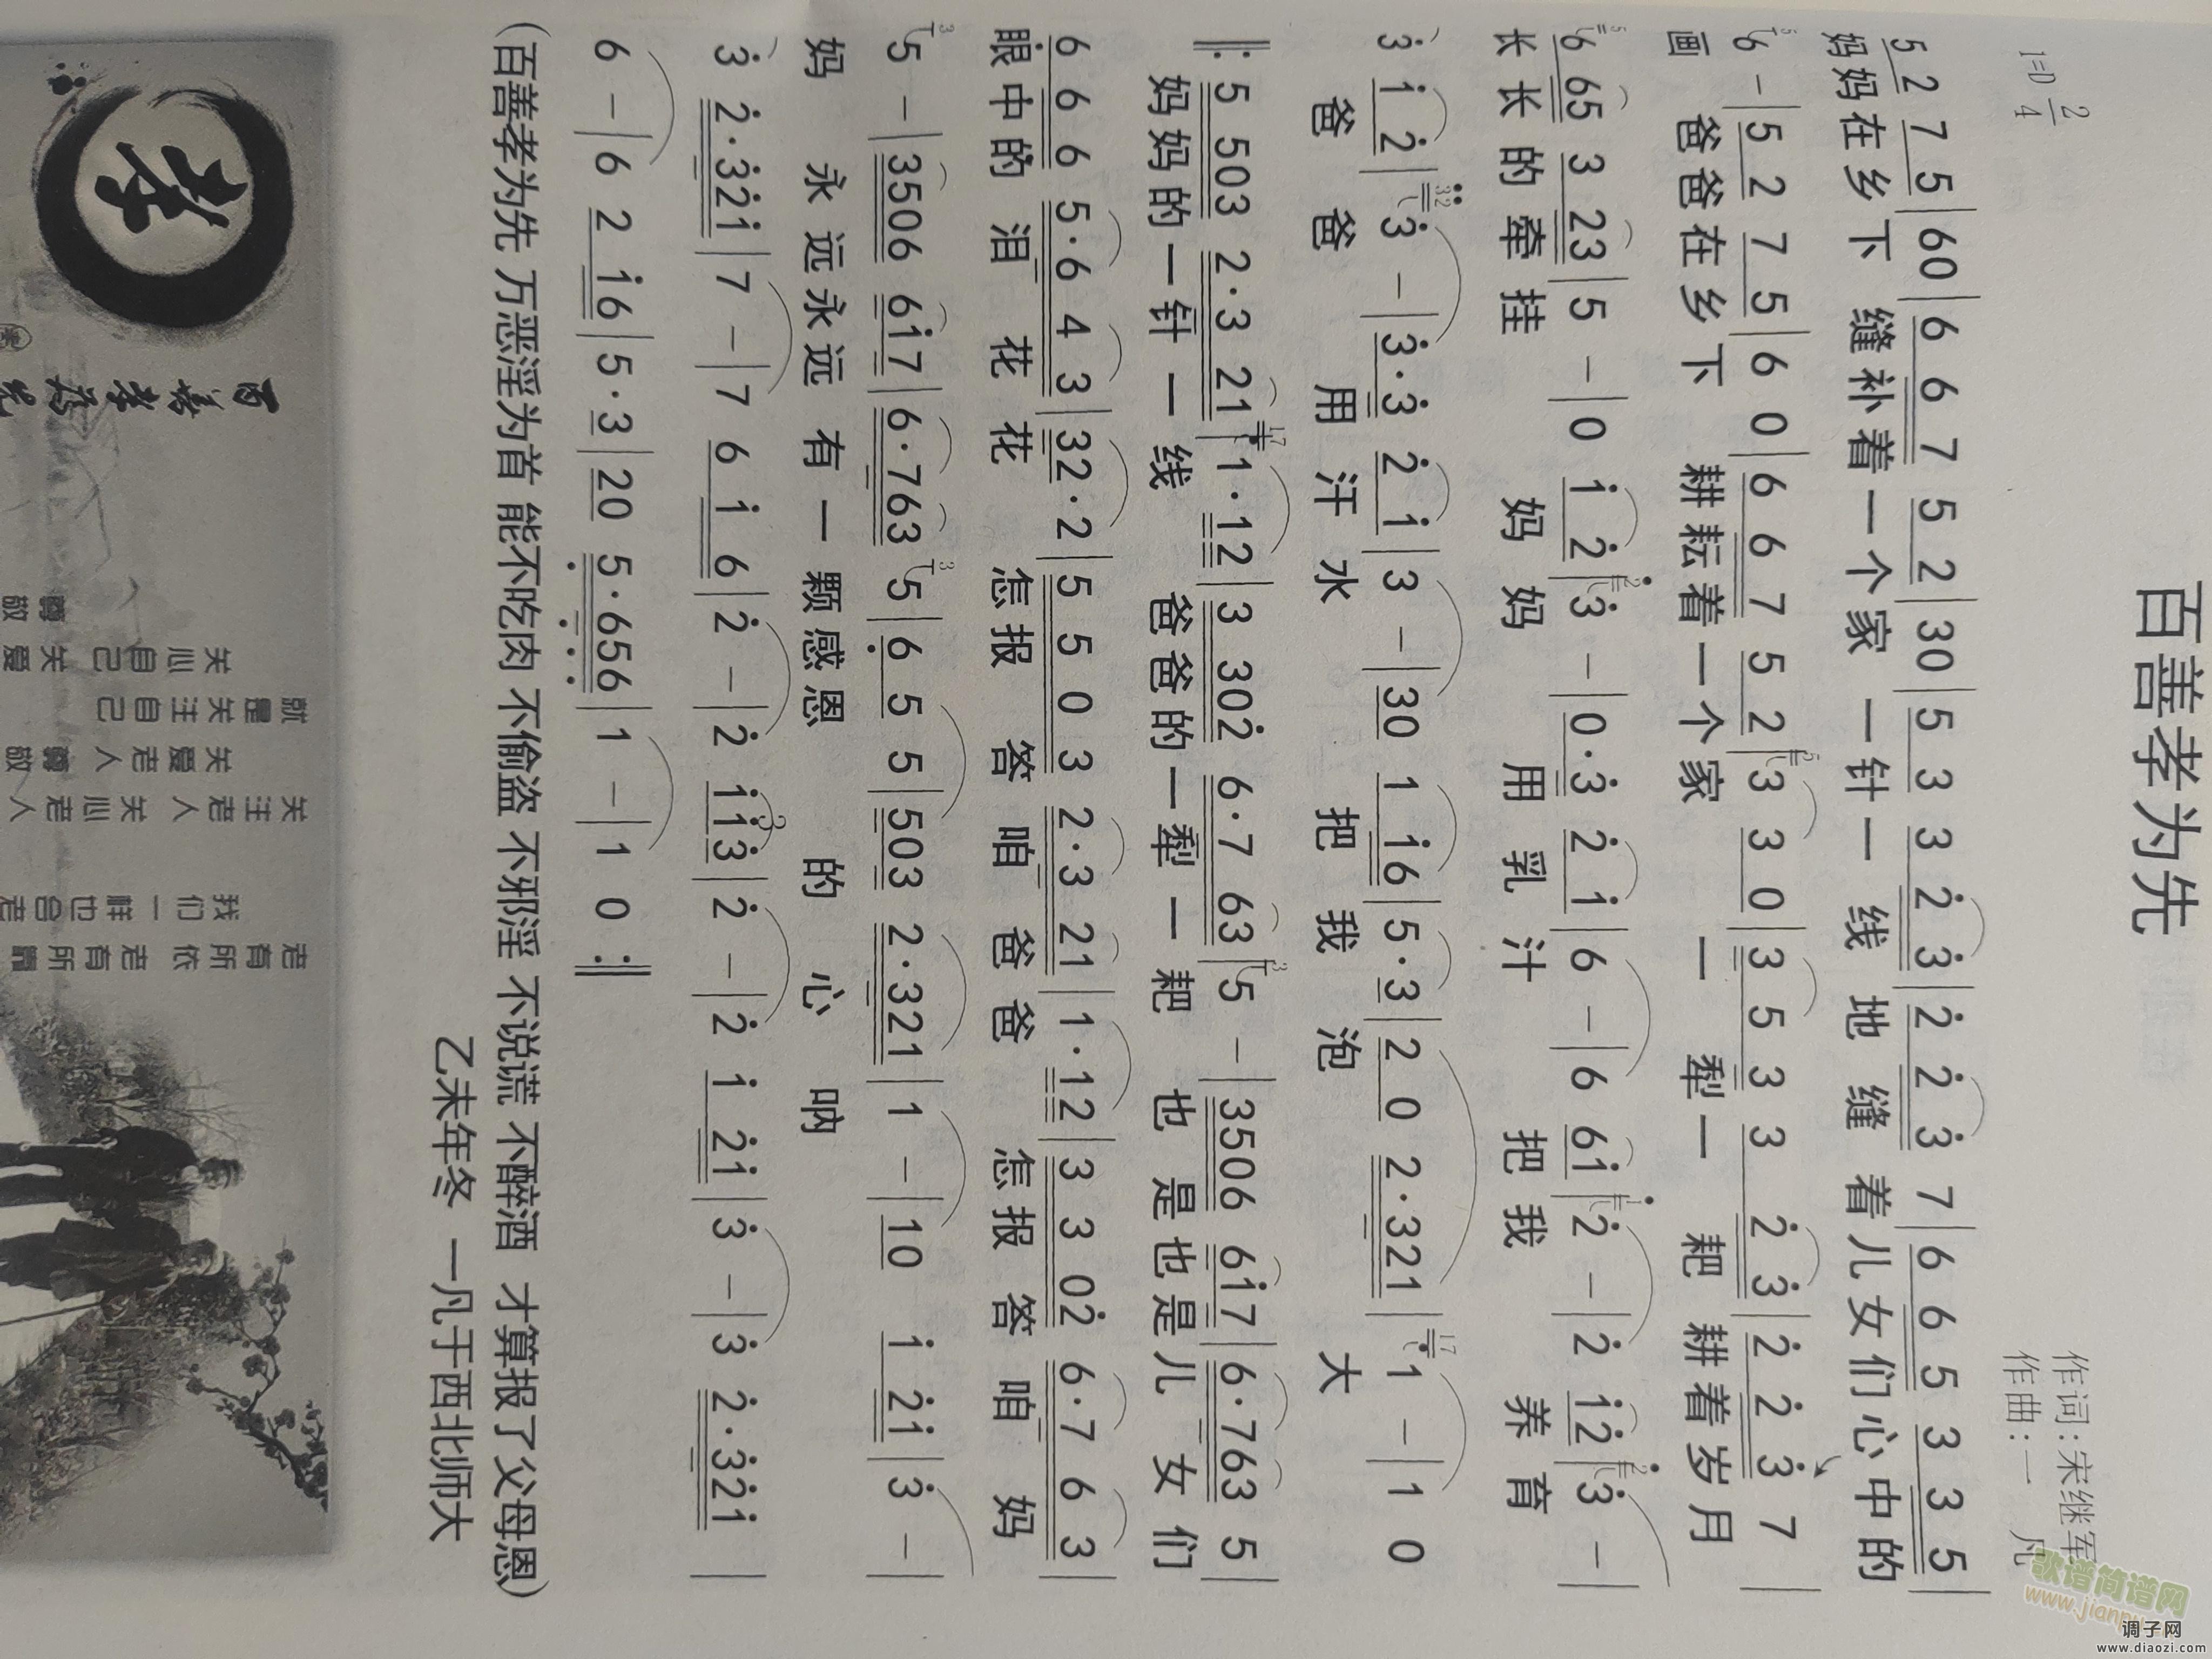 百善孝为先
作词:宋继军
1=D 2/4
作曲:一 凡
5 2 7 5 | 60 | 6 6 7 5 2 | 30 | 5 3 3 2̇ 3̇ | 2̇ 2̇ 3̇ 7 | 6 6 5 3 3 5 |
妈妈在乡下 缝补着一个家 一针一 线 地 缝 着儿女们心中的
6 - | 5 2 7 5 | 6 0 | 6 6 7 5 2 | 3 3 0 | 3 5 3 3 2̇ 3̇ | 2̇ 2̇ 3̇ 7 |
画 爸爸在乡下 耕耘着一个家 一 犁一 耙 耕着岁月
6 65 3 23 | 5 - | 0 1̇ 2̇ | 3̇ - | 0·3̇ 2̇ 1̇ | 6 - | 6 61̇ | 2̇ - | 2̇ 1̇2̇ | 3̇ - |
长长的牵挂 妈妈 用乳汁 把我 养育
3̇ 1̇ 2̇ | 3̇ - | 3̇·3̇ 2̇ 1̇ | 3 - | 30 1 1̇6 | 5·3 | 2 0 2·321 | 1 - | 1 0
爸 爸 用汗水 把我泡 大
‖: 5 503 2·3 21 | 1·12 | 3 302̇ 6·7 63 | 5 - | 3506 61̇7 | 6·763 5 |
妈妈的一针一线 爸爸的一犁一耙 也是也是儿女们
6 6 6 5·6 4 3 | 32·2 | 5 5 0 3 2·3 21 | 1·12 | 3 3 02̇ 6·7 6 3 |
眼中的泪花花 怎报答咱爸爸 怎报答咱妈
5 - | 3506 61̇7 | 6·763 5 | 6̣ 5 5 | 503 2·321 | 1 - | 10 1̇ 2̇1̇ | 3̇ - |
妈 永远永远有一颗感恩 的心呐
3̇ 2̇·3̇2̇1̇ | 7 - | 7 6 1̇ 6 | 2̇ - | 2̇ 1̇1̇3̇ | 2̇ - | 2̇ 1̇ 2̇1̇ | 3̇ - | 3̇ 2̇·3̇2̇1̇ |
6 - | 6 2 1̇6 | 5·3 | 20 5̣·6̣5̣6̣ | 1 - | 1 0 :‖
(百善孝为先 万恶淫为首 能不吃肉 不偷盗 不邪淫 不说谎 不醉酒 才算报了父母恩)
乙未年冬 一凡于西北师大
孝
百善孝为先
老有所依 老有所靠
我们一样也会老
关注老人 关心老人
关爱老人 尊敬
就是关注自己
关心自己 关爱
尊敬
歌谱简谱网
www.jianpu
调子网
www.diaozi.com